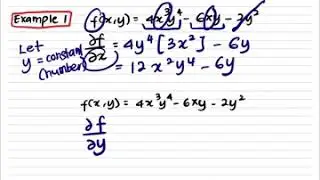 Example 1 f(x,y) = 4x³y⁴ - 6xy - 2y²
Let y = constant (number)
∂f/∂x = 4y⁴[3x²] - 6y
= 12x²y⁴ - 6y
f(x,y) = 4x³y⁴ - 6xy - 2y²
∂f/∂y